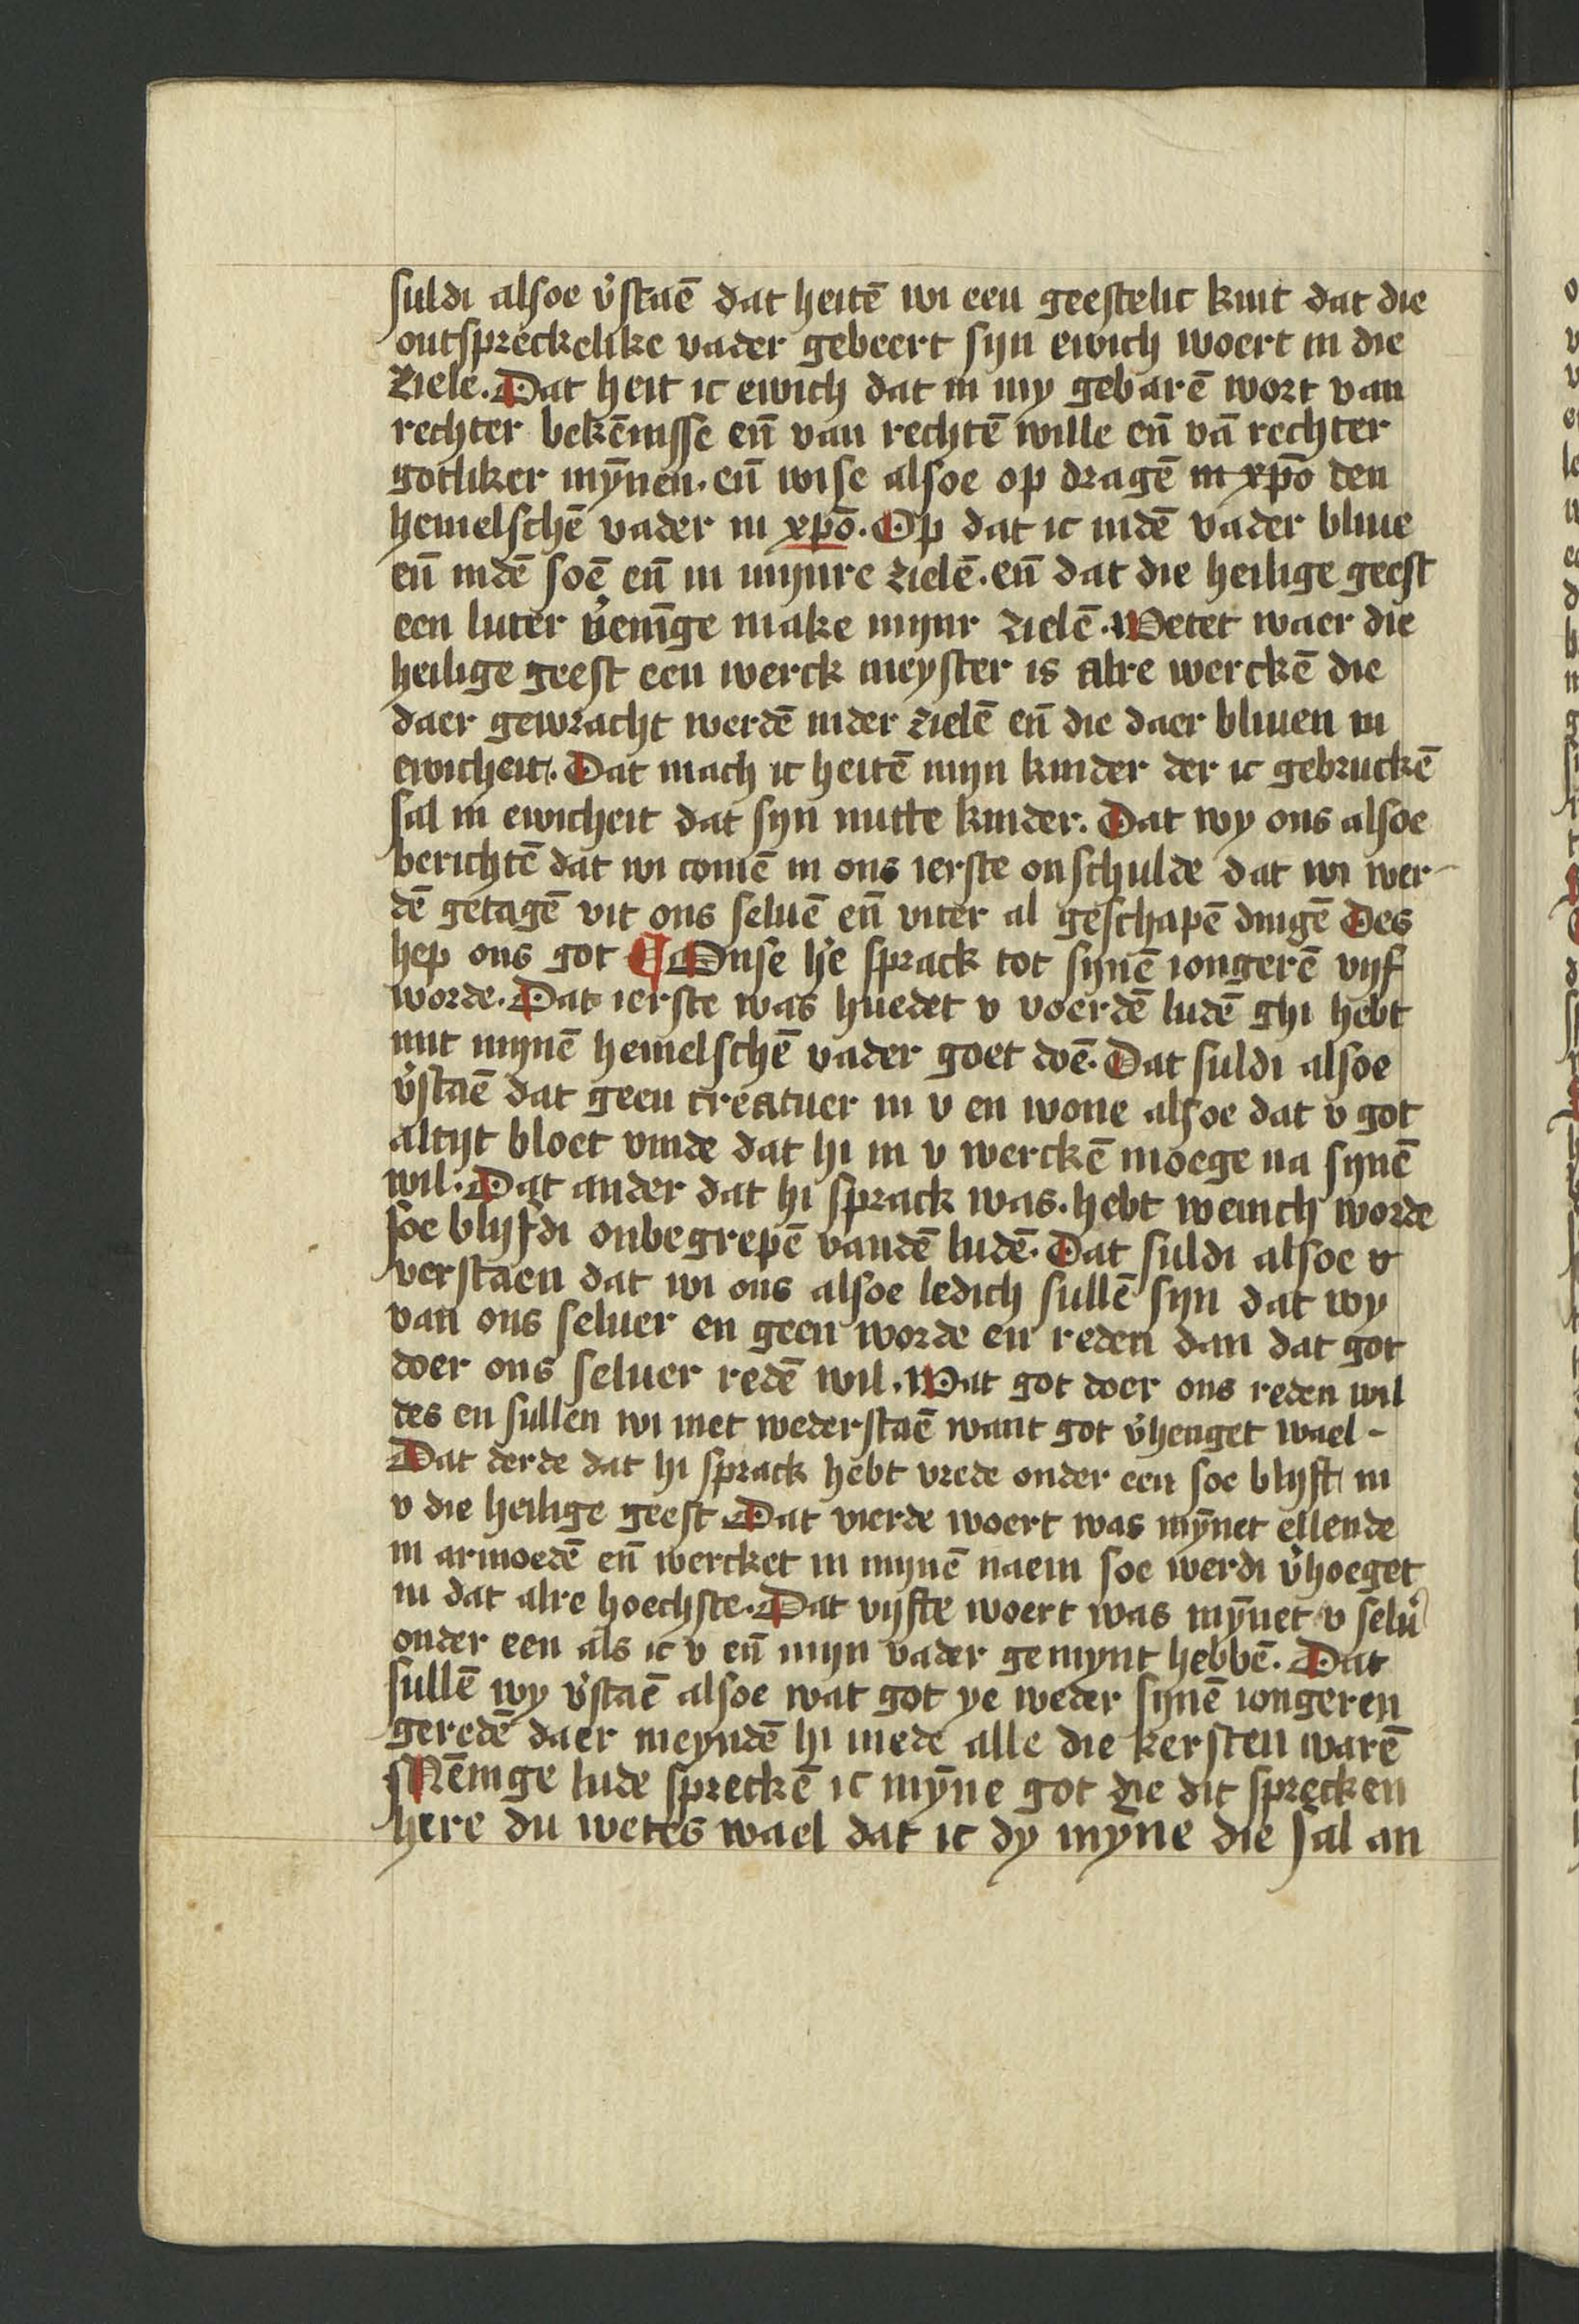 suldi alsoe v̓staē dat heitē wi een geestelic kint dat die
ontspreckelike vader gebeert syn ewich woert in die
ziele. Dat heit ic ewich dat in my gebarē wort van
rechter bekēnisse en̄ van rechtē wille en̄ vā rechter
gotliker mȳnen. en̄ wise alsoe op dragē in xp̄o den
hemelschē vader in xp̄o. Op dat ic indē vader bliue
en̄ indē soē en̄ in mynre zielē. en̄ dat die heilige geest
een luter v̓enīge make mynr zielē. Wetet waer die
heilige geest een werck meyster is alre werckē die
daer gewracht werdē inder zielē en̄ die daer bliuen in
ewicheit. Dat mach ic heitē myn kinder der ic gebruckē
sal in ewicheit dat syn nutte kinder. Dat wy ons alsoe
berichtē dat wi comē in ons ierste onschulde dat wi wer-
dē getagē vit ons seluē en̄ viter al geschapē dingē Des
hep ons got ¶ Onse h̓e sprack tot synē iongerē vyf
worde. Dat ierste was huedet v voerdē ludē ghi hebt
mit mynē hemelschē vader goet doē. Dat suldi alsoe
v̓staē dat geen creatuer in v en wone alsoe dat v got
altyt bloet vinde dat hi in v werckē moege na synē
wil. Dat ander dat hi sprack was. hebt weinich worde
soe blyfdi onbegrepē vandē ludē. Dat suldi alsoe v
verstaen dat wi ons alsoe ledich sullē syn dat wy
van ons seluer en geen worde en reden dan dat got
doer ons seluer redē wil. Wat got doer ons reden wil
des en sullen wi niet wederstaē want got v̓henget wael -
Dat derde dat hi sprack hebt vrede onder een soe blyft in
v die heilige geest Dat vierde woert was mȳnet ellende
in armoedē en̄ wercket in mynē naem soe werdi v̓hoeget
in dat alre hoechste. Dat vyfte woert was mȳnet v selu̓
onder een als ic v en̄ myn vader gemynt hebbē. Dat
sullē wy v̓staē alsoe wat got ye weder synē iongeren
geredē daer meyndē hi mede alle die kersten warē
Mēnige lude spreckē ic mȳne got die dit sprecken
here du wetes wael dat ic dy myne die sal an